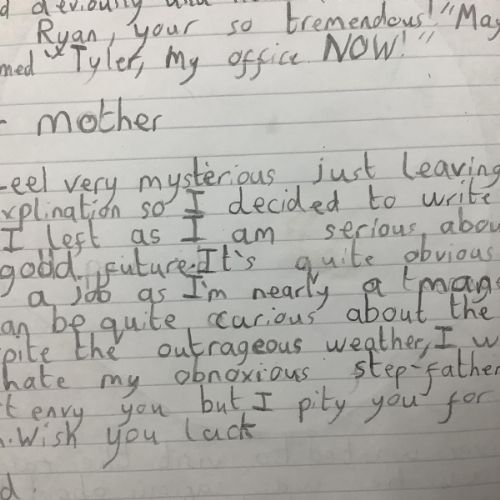 d deviously and
Ryan, your so tremendous! "May
med "Tyler, my office NOW!"
- mother
eel very mysterious just leaving
xplination so I decided to write
I left as I am serious abou
good future. It's quite obvious
a job as I'm nearly a
an be quite curious about the
pite the outrageous weather, I w
hate my obnoxious step-father
t envy you but I pity you for
. Wish you luck
d.